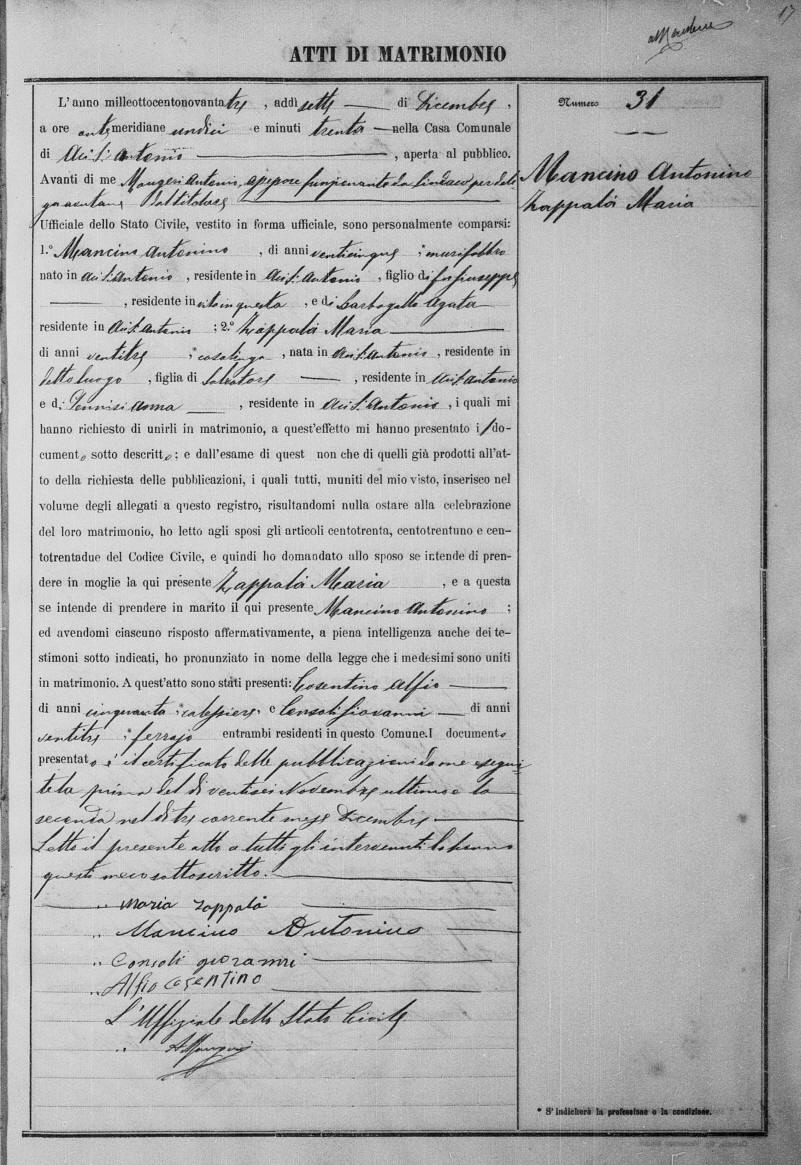 17
ATTI DI MATRIMONIO
Numero 31
Mancino Antonino
Zappalà Maria
L'anno milleottocentonovantatre, addì sette di Dicembre,
a ore antimeridiane undici e minuti trenta nella Casa Comunale
di Aci S. Antonio, aperta al pubblico.
Avanti di me Maugeri Antonio, assessore funzionante da Sindaco per dele
Ufficiale dello Stato Civile, vestito in forma ufficiale, sono personalmente comparsi:
1.° Mancino Antonino, di anni venticinque, murifabbro
nato in Aci S. Antonio, residente in Aci S. Antonio, figlio di fu Giuseppe
, residente in vita in questa, e di Barbagallo Agata
residente in Aci S. Antonio; 2.° Zappalà Maria
di anni ventitre, casalinga, nata in Aci S. Antonio, residente in
detto luogo, figlia di Salvatore, residente in Aci S. Antonio
e di Pennisi Anna, residente in Aci S. Antonio, i quali mi
hanno richiesto di unirli in matrimonio, a quest'effetto mi hanno presentato il do-
cumento sotto descritto; e dall'esame di quest non che di quelli già prodotti all'at-
to della richiesta delle pubblicazioni, i quali tutti, muniti del mio visto, inserisco nel
volume degli allegati a questo registro, risultandomi nulla ostare alla celebrazione
del loro matrimonio, ho letto agli sposi gli articoli centotrenta, centotrentuno e cen-
totrentadue del Codice Civile, e quindi ho domandato allo sposo se intende di pren-
dere in moglie la qui presente Zappalà Maria, e a questa
se intende di prendere in marito il qui presente Mancino Antonino;
ed avendomi ciascuno risposto affermativamente, a piena intelligenza anche dei te-
stimoni sotto indicati, ho pronunziato in nome della legge che i medesimi sono uniti
in matrimonio. A quest'atto sono stati presenti: Cosentino Alfio
di anni cinquanta, e Consoli Giovanni di anni
ventitre, ferrajo entrambi residenti in questo Comune. I documento
presentato è il certificato delle pubblicazioni da me esegui-
te la prima del dì ventisei Novembre ultimo e la
seconda nel dì tre corrente mese Dicembre
Letto il presente atto a tutti gli intervenuti lo hanno
questi meco sottoscritto.
„ Maria Zappalà
„ Mancino Antonino
„ Consoli Giovanni
„ Alfio Cosentino
L'Uffiziale dello Stato Civile
„ A Maugeri
* S'indicherà la professione o la condizione.